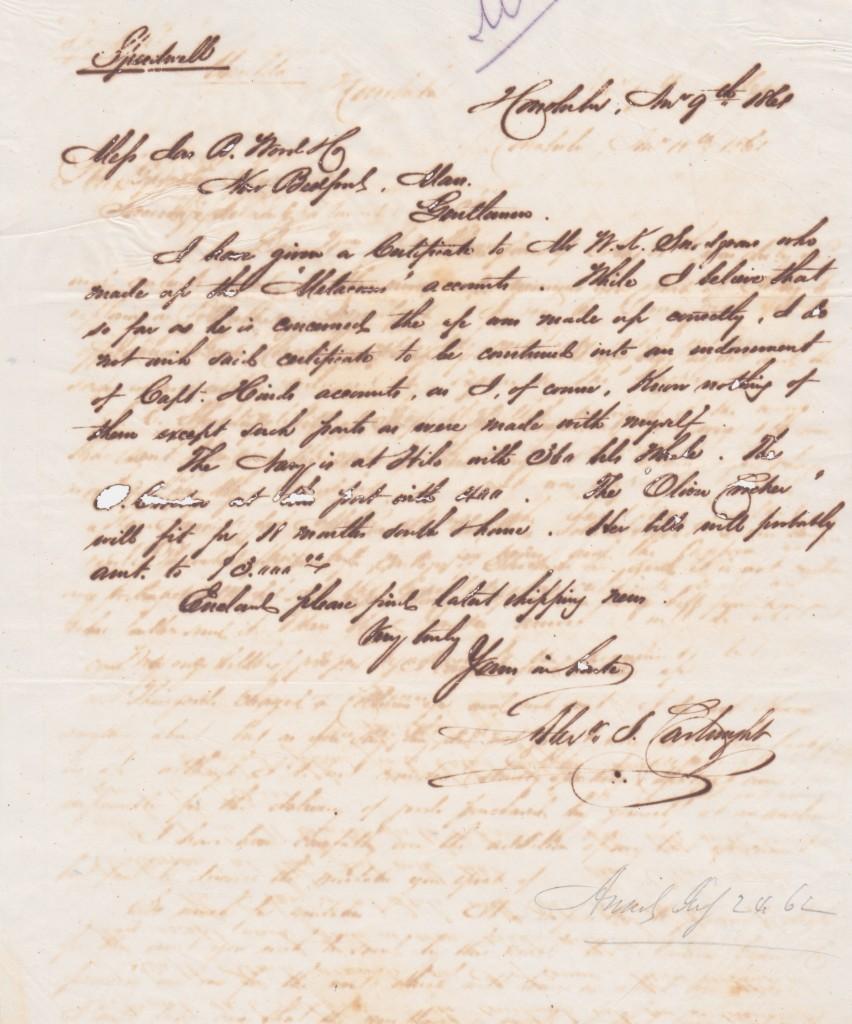 Speedwell
Honolulu, Nov 9th 1861
Mess Jas B. Wood & Co
New Bedford, Mass.
Gentlemen.
I have given a Certificate to Mr W. K. Snodgrass who
made up the "Metacom" accounts. While I believe that
so far as he is concerned the a/c was made up correctly, I do
not wish said certificate to be construed into an endorsement
of Capt. Hinds accounts, as I, of course, know nothing of
them except such parts as were made with myself
The Navy is at Hilo with 360 bbls Whale. The
at this port with 400. The "Oliver Crocker"
will fit for 18 months south & home. Her bills will probably
amt. to $3.000 00
Enclosed please find latest shipping news.
Very truly
Yours in haste
Alexr J. Cartwright
24 62